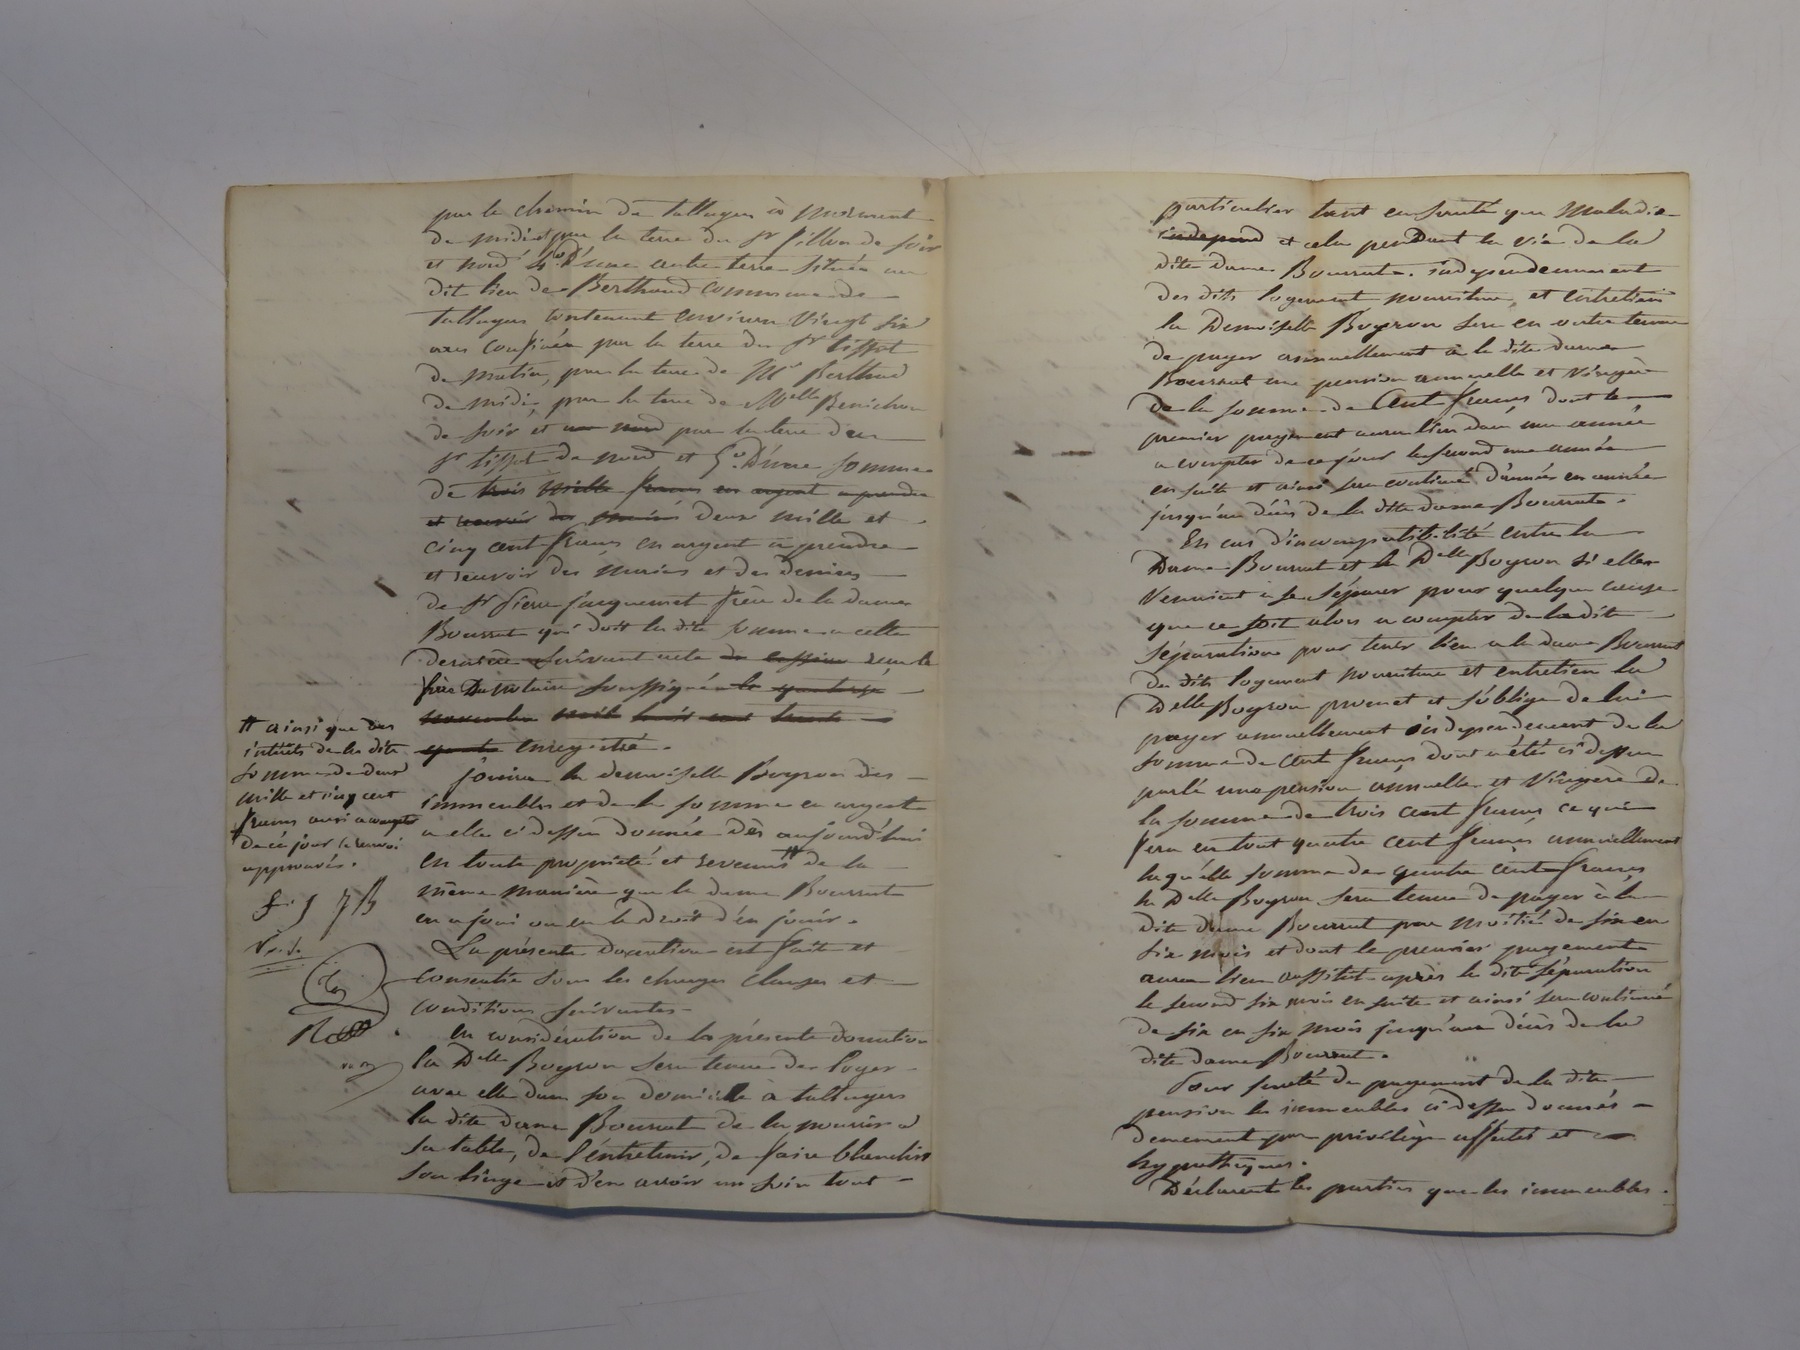 par le chemin de talluyers à mornant
de midi et par la terre du Sr fillon de soir
et nord 4o. D'une autre terre située au
dit lieu de Berthoud commune de
talluyers contenant environ vingt six
ares confinée par la terre du Sr tissot
de matin, par la terre de Mr Berthoud
de midi, par la terre de Melle Benichon
de soir et au nord par la terre du
Sr tissot de nord et 5o. D'une somme
de trois mille francs en argent a prendre
et recevoir des mains deux mille et
cinq cent francs en argent à prendre
et recevoir des mains et des deniers
de Sr pierre jacquemet frère de la dame
Bourrat qui doit la dite somme a cette
dernière suivant acte de cession reçu le
par Du notaire soussigné le quatorze
novembre mil huit cent trente
quatre enregistré.
jouira la demoiselle Boyron des
immeubles et de la somme en argent
a elle ci dessus donnée dès aujourd'hui
en toute propriété et revenus # de la
même manière que la dame Bourrat
en a joui ou eu le droit d'en jouir.
La présente donation est faite et
consentie sous les charges clauses et
conditions suivantes.
en considération de la présente donation
la Delle Boyron sera tenue de loger
avec elle dans son domicile à talluyers
la dite dame Bourrat de la nourrir a
sa table, de l'entretenir, de faire blanchir
son linge et d'en avoir un soin tout
# ainsi que des
intérêts de la dite
somme de deux
mille et cinq cent
francs aussi a compter
de ce jour le renvoi
approuvés.
particulier tant en santé que maladie
independ et cela pendant la vie de la
dite dame Bourrat. independemment
des dits logement nourriture, et entretien
la Demoiselle Boyron sera en outre tenue
de payer annuellement à la dite dame
Bourrat une pension annuelle et viagère
de la somme de Cent francs dont le
premier payement aura lieu dans une année
a compter de ce jour le second une année
en suite et ainsi sera continué d'année en année
jusqu'au décès de la dite dame Bourrat.
En cas d'incompatibilité entre la
Dame Bourrat et la Delle Boyron si elles
venoient a se séparer pour quelque cause
que ce soit alors a compter de la dite
séparation pour tenir lieu a la dame Bourrat
des dits logement nourriture et entretien la
Delle Boyron promet et s'oblige de lui
payer annuellement independemment de la
somme de Cent francs dont a été ci dessus
parlé une pension annuelle et viagère de
la somme de trois cent francs ce qui
fera en tout quatre cent francs annuellement
laquelle somme de quatre cent francs
la Delle Boyron sera tenue de payer à la
dite dame Bourrat par moitié de six en
six mois et dont le premier payement
aura lieu aussitot après la dite séparation
le second six mois en suite et ainsi sera continué
de six en six mois jusqu'au décès de la
dite dame Bourrat.
Pour sureté du payement de la dite
pension les immeubles ci dessus donnés
demeurent par privilège affectés et
hypothéqués.
Déclarent les parties que les immeubles